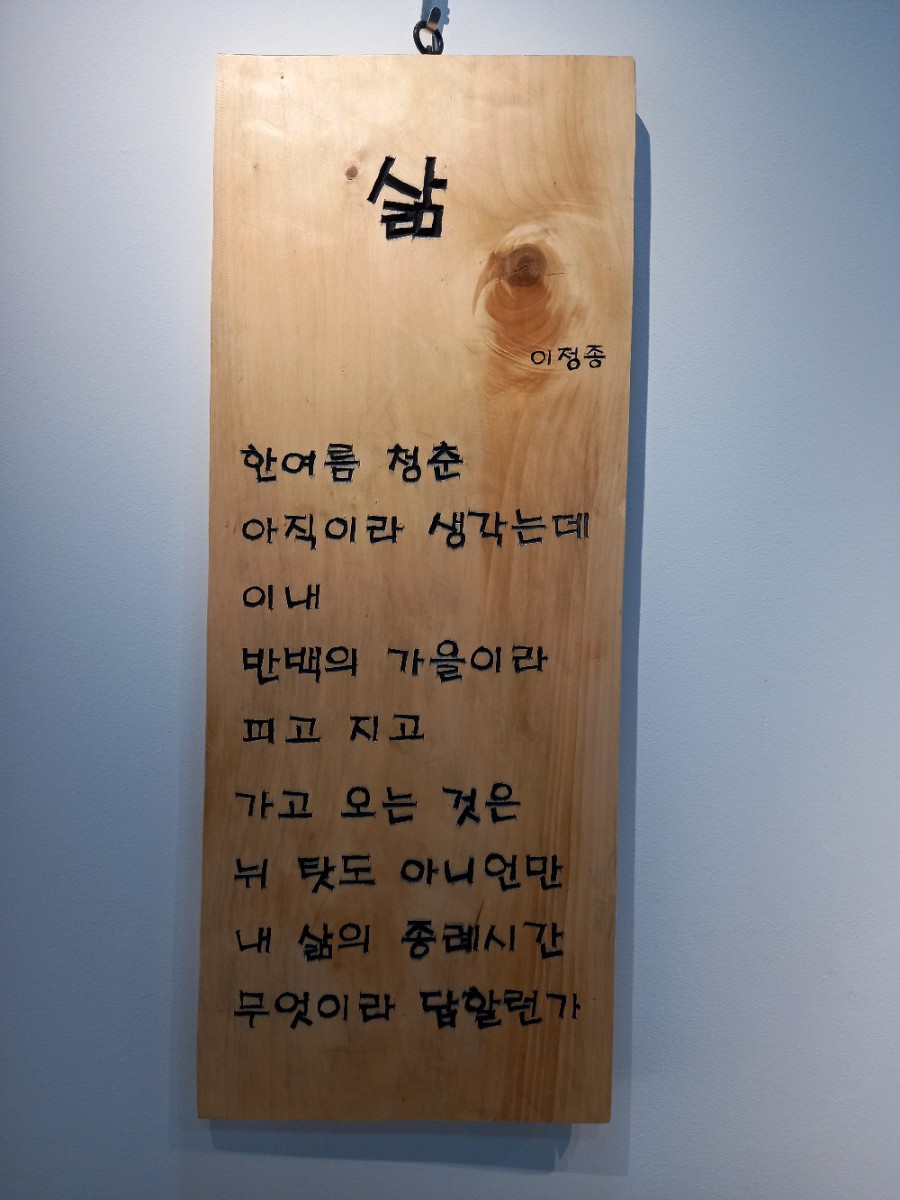 삶
이정종
한여름 청춘
아직이라 생각는데
이내
반백의 가을이라
피고 지고
가고 오는 것은
뉘 탓도 아니언만
내 삶의 종례시간
무엇이라 답할런가